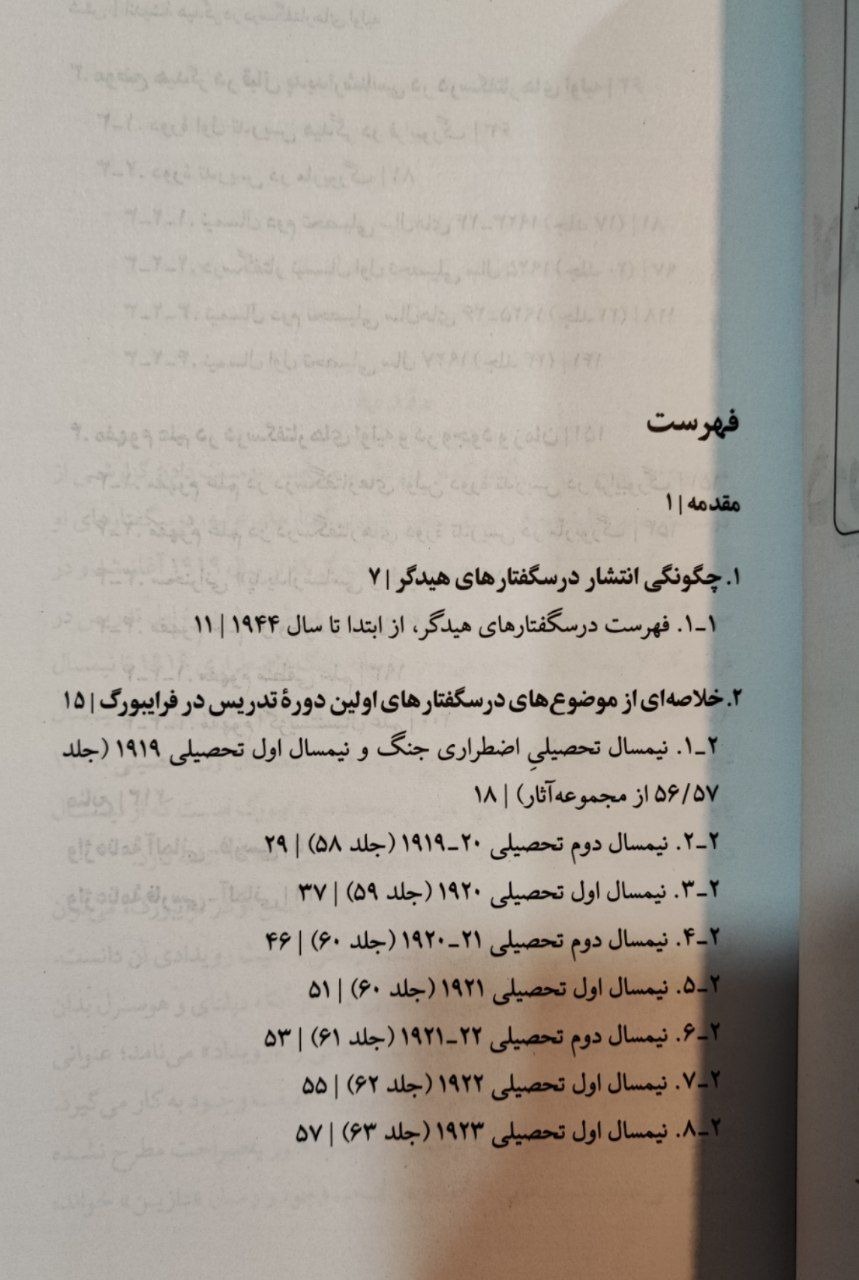 فهرست
مقدمه | ۱
۱. چگونگی انتشار درسگفتارهای هیدگر | ۷
۱ـ۱. فهرست درسگفتارهای هیدگر، از ابتدا تا سال ۱۹۴۴ | ۱۱
۲. خلاصه‌ای از موضوع‌های درسگفتارهای اولین دورهٔ تدریس در فرایبورگ | ۱۵
۲ـ۱. نیمسال تحصیلیِ اضطراری جنگ و نیمسال اول تحصیلی ۱۹۱۹ (جلد
۵۶/۵۷ از مجموعه‌آثار) | ۱۸
۲ـ۲. نیمسال دوم تحصیلی ۲۰ـ۱۹۱۹ (جلد ۵۸) | ۲۹
۲ـ۳. نیمسال اول تحصیلی ۱۹۲۰ (جلد ۵۹) | ۳۷
۲ـ۴. نیمسال دوم تحصیلی ۲۱ـ۱۹۲۰ (جلد ۶۰) | ۴۶
۲ـ۵. نیمسال اول تحصیلی ۱۹۲۱ (جلد ۶۰) | ۵۱
۲ـ۶. نیمسال دوم تحصیلی ۲۲ـ۱۹۲۱ (جلد ۶۱) | ۵۳
۲ـ۷. نیمسال اول تحصیلی ۱۹۲۲ (جلد ۶۲) | ۵۵
۲ـ۸. نیمسال اول تحصیلی ۱۹۲۳ (جلد ۶۳) | ۵۷